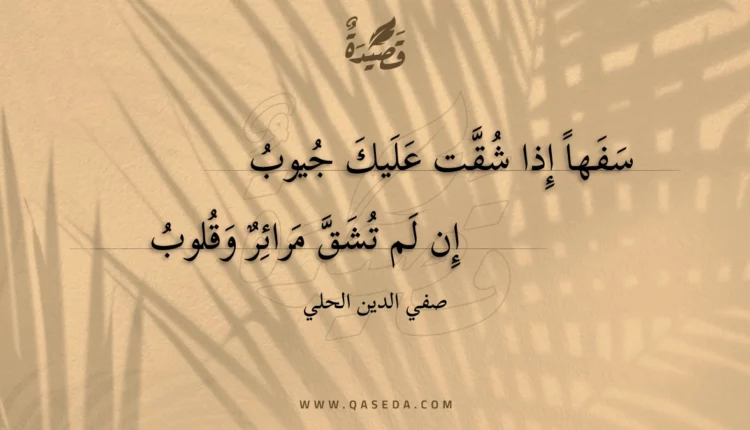 قَصِيدَةٌ
سَفَهاً إِذا شُقَّت عَلَيكَ جُيوبُ
إِن لَم تُشَقَّ مَرائِرٌ وَقُلوبُ
صفي الدين الحلي
WWW.QASEDA.COM